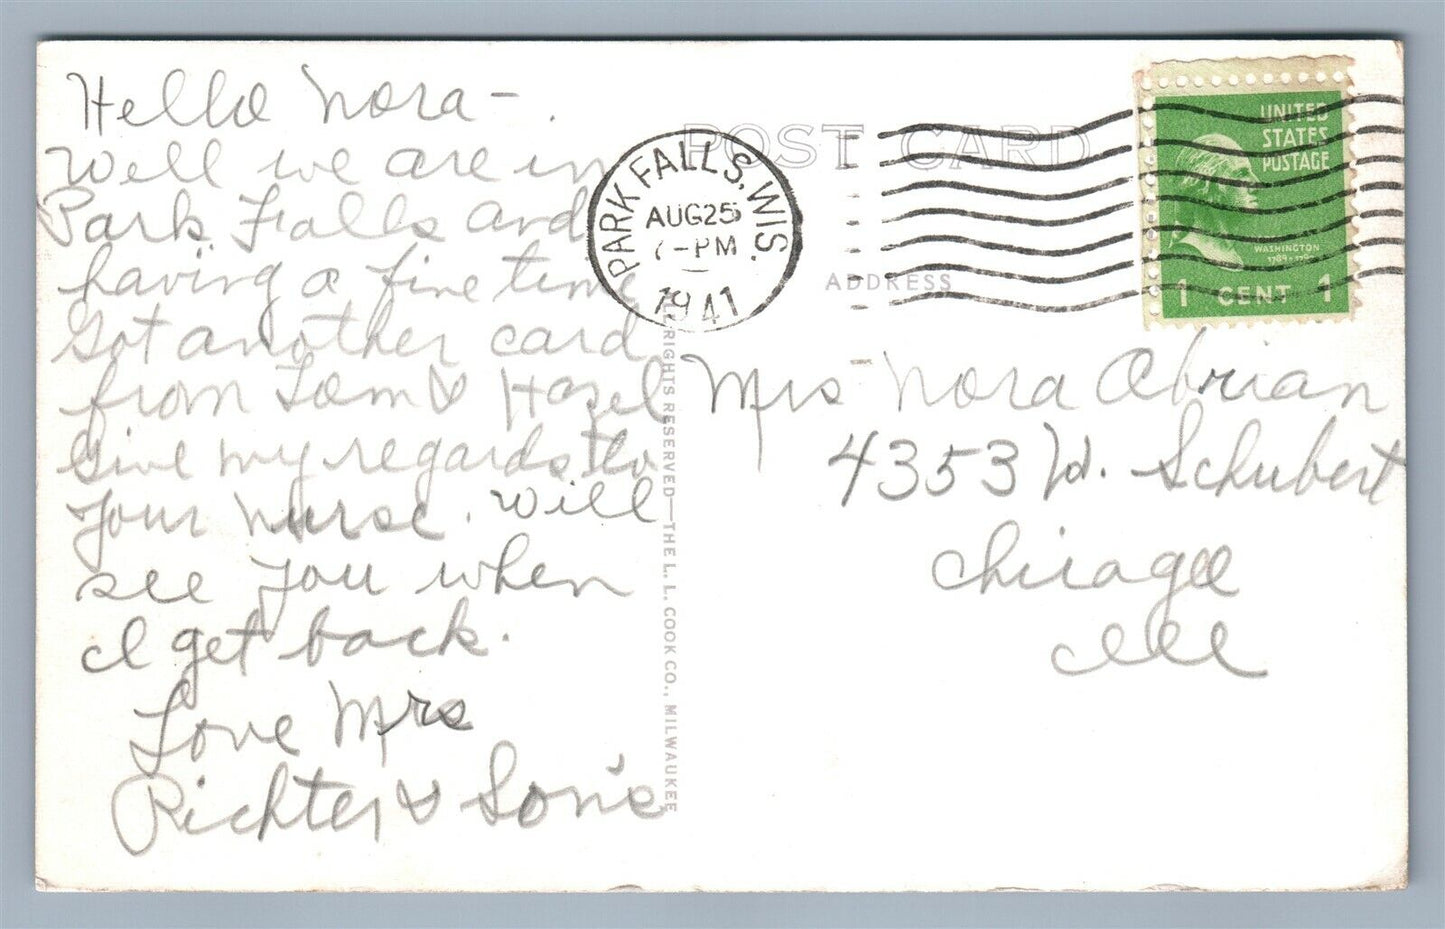 Hello Nora -.
Well we are in
Park Falls and
having a fine time
Got another card
from Tom & Hazel
Give my regards to
your nurse. Will
see you when
I get back.
Love Mrs
Richter & Son's
POST CARD
PARK FALLS, WIS.
AUG 25
7-PM
1941
UNITED
STATES
POSTAGE
WASHINGTON
1 CENT 1
ADDRESS
Mrs Nora Abrian
4353 W. Schubert
Chicago
Ill
RIGHTS RESERVED—THE L. L. COOK CO., MILWAUKEE